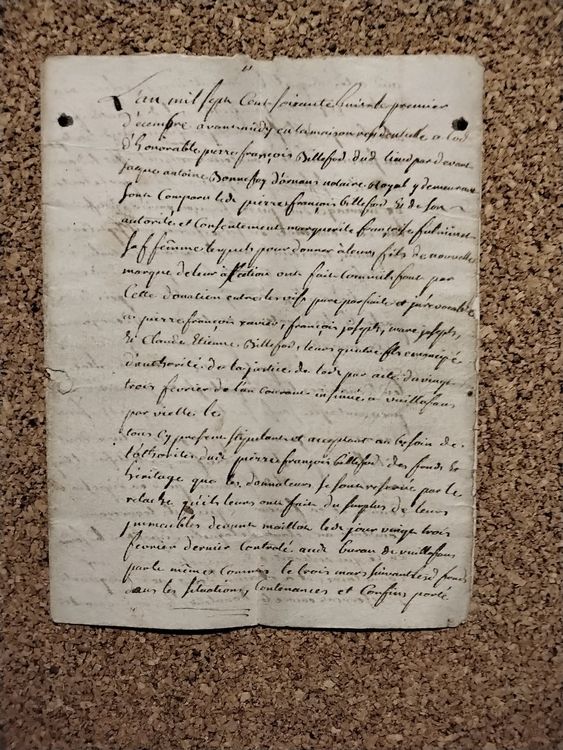 L'an mil sept cent soixante huit le premier
décembre avant midy en la maison residentielle a Lod
d'honorable pierre françois Billefod dud lieu par devant
jaque antoine Bonnefoy d'ornans notaire Royal y demeurant
sont comparu led. pierre françois billefod Et de son
autorité et Consentement marguerite françoise
sa femme lesquels pour donner à leurs fils de nouvelle
marque de leur affection ont fait comme ils font par
Cette donation entre les vifs pure parfaite et irrévocable
a pierre françois xavier, françois joseph, marc joseph,
Et Claude Etienne Billefod, leurs quatre fils emancipé
d'authorité de la justice de Lods par acte du vingt
trois fevrier de l'an courant insinué a vuillafans
par vielle le
tous Cy present stipulants et acceptant au besoin de
l'othorité dud pierre françois billefod des fonds et
héritage que les donnateurs se sont reservée par le
relache qu'ils leurs ont fait du surplus de leurs
immeubles devant maillot led. jour vingt trois
fevrier dernier Controlé aud. bureau de vuillafans
par le même commis le trois mars suivant fonds
dans les situations, Contenances et Confins porté